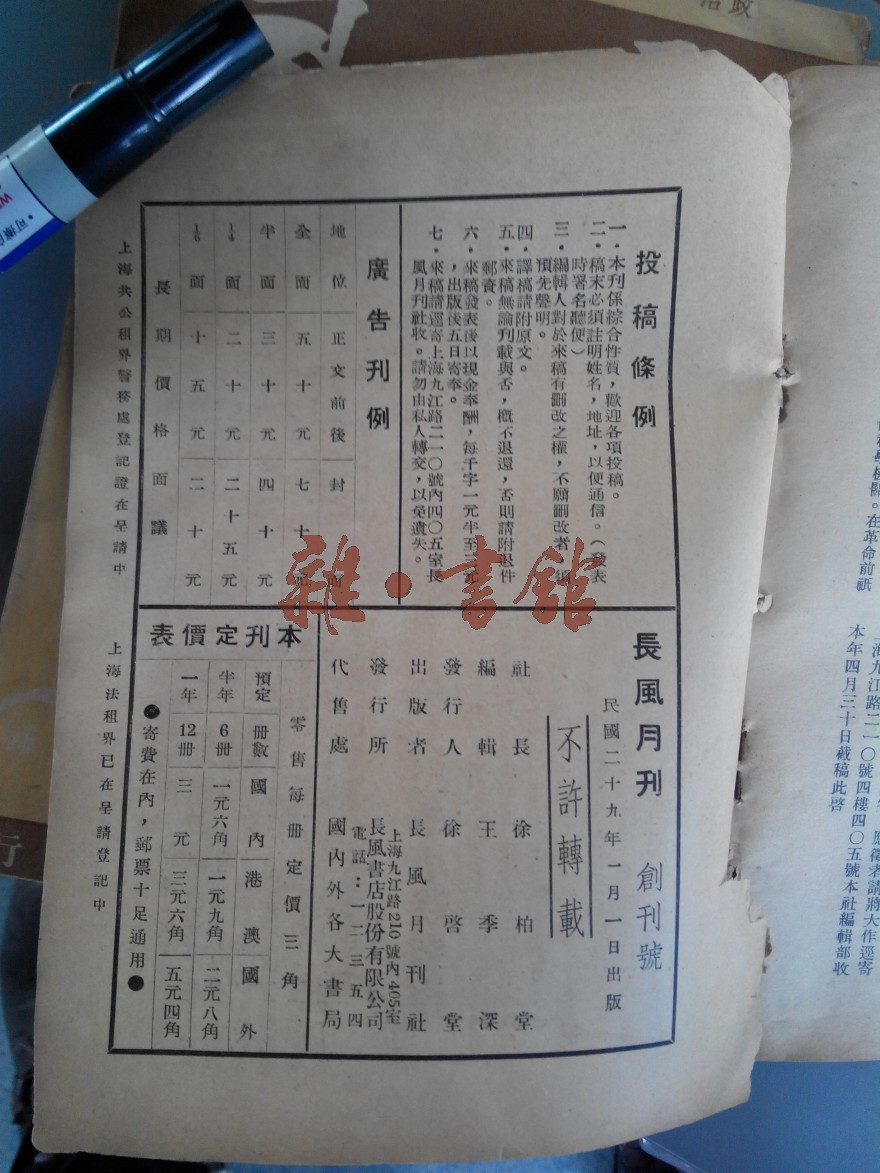 投稿條例
一．本刊係綜合性質，歡迎各項投稿。
二．稿末必須註明姓名，地址，以便通信。（發表
時署名聽便）
三．編輯人對於來稿有删改之權，不願删改者，須
預先聲明。
四．譯稿請附原文。
五．來稿無論刊載與否，概不退還，否則請附退件
郵資。
六．來稿發表後以現金奉酬，每千字一元半至三元
，出版後五日寄奉。
七．來稿請逕寄上海九江路二一〇號內四〇五室長
風月刊社收。請勿由私人轉交，以免遺失。
廣告刊例
地位 正文前後 封面
全面 五十元 七十元
半面 三十元 四十元
1/4面 二十元 二十五元
1/6面 十五元 二十元
長期價格面議
長風月刊 創刊號
民國二十九年一月一日出版
不許轉載
社長 徐柏堂
編輯 王季深
發行人 徐啓堂
出版者 長風月刊社
上海九江路210號內405室
發行所 長風書店股份有限公司
電話：一二三五四
代售處 國內外各大書局
本刊定價表
零售每冊定價三角
預定 冊數 國內 港澳 國外
半年 6冊 一元六角 一元九角 二元八角
一年 12冊 三元 三元六角 五元四角
●寄費在內，郵票十足通用●
上海共公租界警務處登記證在呈請中
上海法租界已在呈請登記中
雜·書館
政治
行
。在革命前祇
海九江路二一〇號四樓四〇五號本社編輯部收
本年四月三十日截稿此啓
應徵者請將大作逕寄